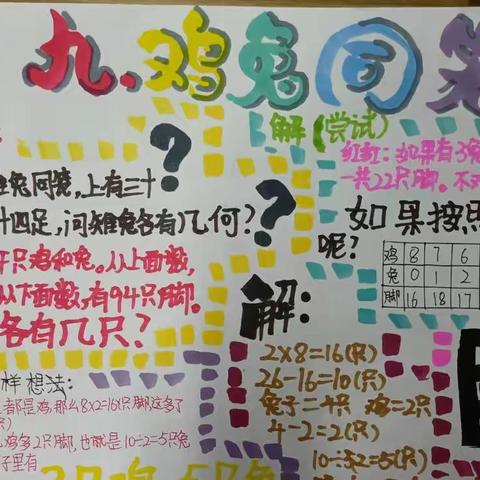 九、鸡兔同笼
?
兔同笼,上有三十
十四足,问雉兔各有几何?
?
只鸡和兔。从上面数,
从下面数,有94只脚。
各有几只?
样想法:
都是鸡,那么8x2=16只脚,这多了
只)
鸡多2只脚,也就是10÷2=5只兔
子里有
解(尝试)
红红:如果有3兔
一共22只脚。不对
如果按照
呢?
鸡 8 7 6
兔 0 1 2
脚 16 18 17
解:
2×8=16(只)
26-16=10(只)
兔子=4只 鸡=2只
4-2=2(只)
10÷2=5(只)